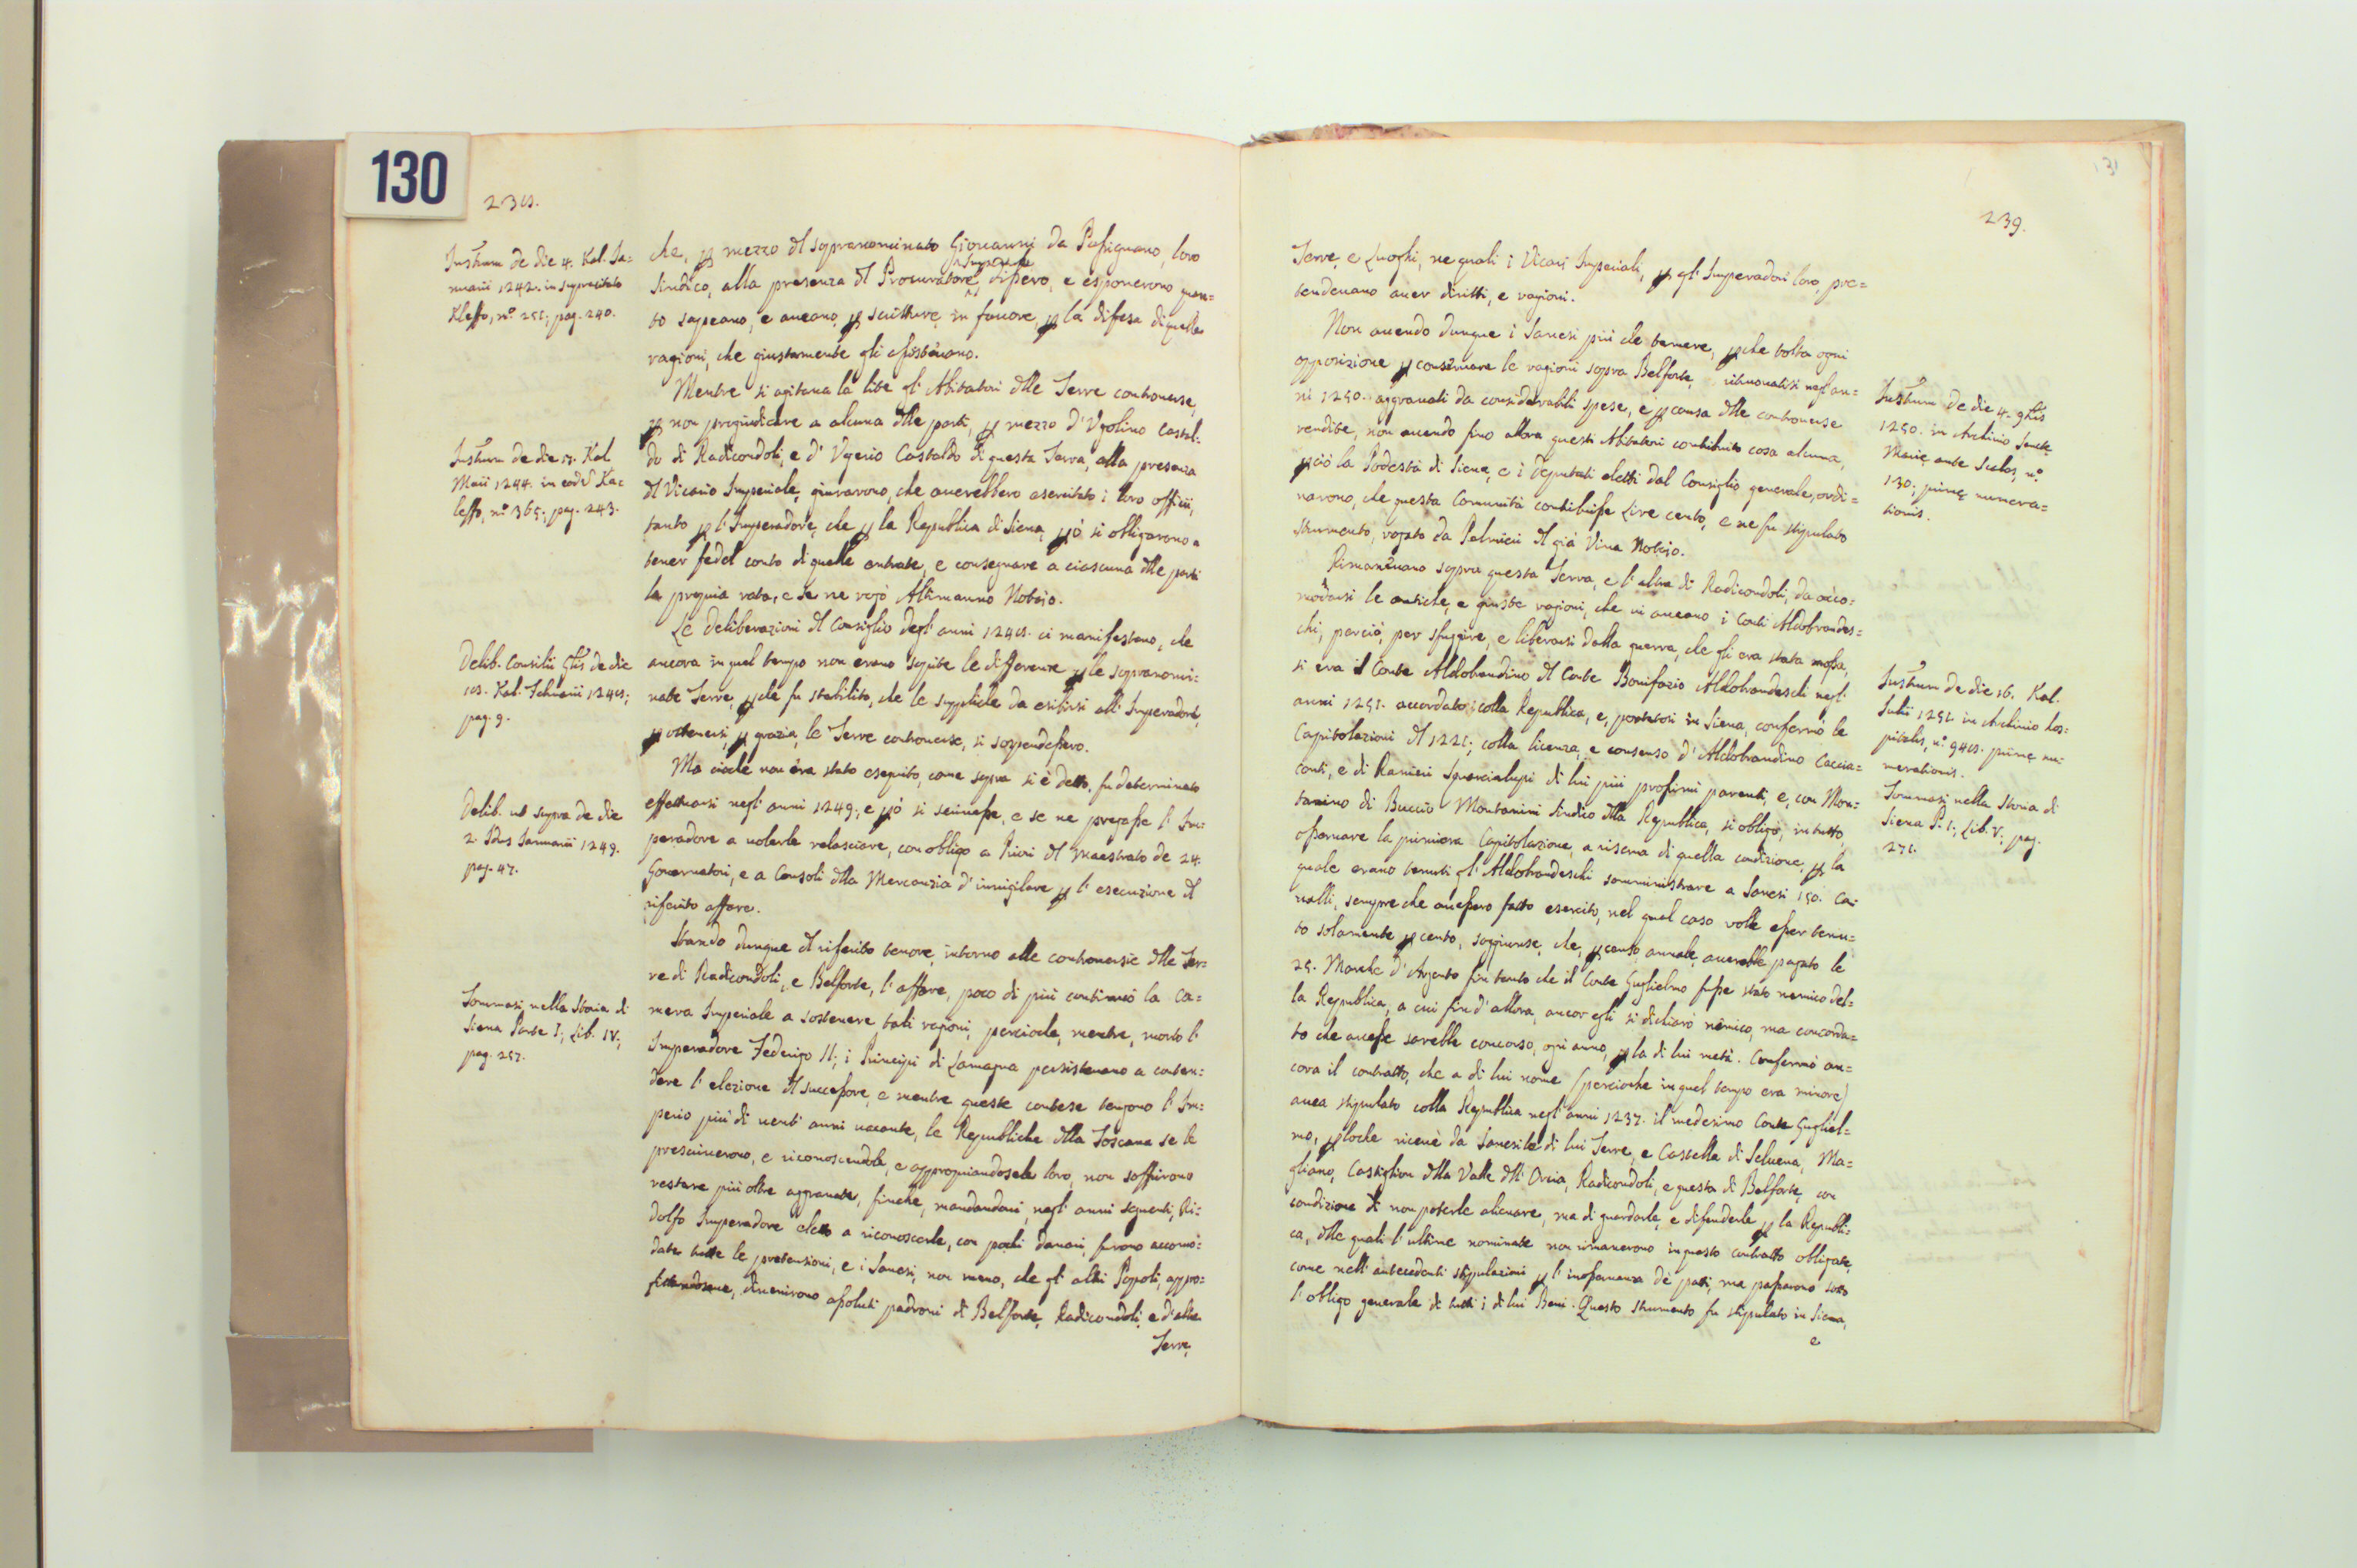 130
238.
Instrum de die 4. Kal. Ja=
nuarii 1242. in supracitato
Kleffo, nº 251; pag. 240.
che, p mezzo dl sopranominato Giovanni da Pasignano, loro
Sindico, alla presenza dl Procuratore Imperiale dissero, e esponerono quan=
to sapeano, e aueano p scritture in fauore, p la difesa di quelle
ragioni, che giustamente gli assisteuano.
Mentre si agitaua la lite gl' Abitatori dlle Terre controuerse,
p non pregiudicare a alcuna dlle parti, p mezzo d' Vgolino Castal=
do di Radicondoli, e d' Vgerio Castaldo di questa Terra, alla presenza
dl Vicario Imperiale, giurarono, che auerebbero esercitato i loro offici,
tanto p l' Imperadore, che p la Republica di Siena, pò si obligarono a
tener fedel conto di quelle entrate, e consegnare a ciascuna dlle parti
la propria rata, e se ne rogò Altimanno Notajo.
Instrum de die 17. Kal.
Maii 1244. in eodē Ka=
leffo, nº 365; pag. 243.
Le deliberazioni dl Consiglio degl' anni 1248. ci manifestano, che
ancora in quel tempo non erano sopite le differenze p le sopranomi=
nate Terre, pche fu stabilito, che le suppliche da esibirsi all' Imperadore,
p ottenersi, p grazia, le Terre controuerse, si sospendessero.
Delib. Consilii Glis de die
18. Kal. Februarii 1248;
pag. 9.
Ma ciochè non era stato eseguito, come sopra si è detto, fu determinato
effettuarsi negl' anni 1249; e pò si scriuesse, e se ne pregasse l' Im=
peradore a uolerle relasciare, con obligo a Priori dl Maestrato de 24.
Gouernatori, e a Consoli dlla Mercanzia d' inuigilare p l' esecuzione dl
riferito affare.
Delib. ut supra de die
2. Idus Januarii 1249.
pag. 47.
Stando dunque dl riferito tenore, intorno alle controuersie dlle Ter=
re di Radicondoli, e Belforte, l' affare, poco di più continuò la Ca=
mera Imperiale a sostenere tali ragioni, perciochè, mentre, morto l'
Imperadore Federigo II; i Principi di Lamagna persisteuano a conten=
dere l' elezione dl successore, e mentre queste contese tengono l' Im=
perio più di uenti anni uacante, le Republiche dlla Toscana se le
prescriuerono, e riconoscendole, e appropriandosele loro, non soffrirono
restare più oltre aggrauate, finchè, mandandoui, negl' anni seguenti, Ri=
dolfo Imperadore eletto a riconoscerle, con pochi danari, furono accomo=
date tutte le pretensioni, e i Sanesi, non meno, che gl' altri Popoli, appro=
fittandosene, diuenirono assoluti padroni di Belforte, Radicondoli, e d'altre
Terre,
Tommasi nella Storia di
Siena Parte I; Lib. IV;
pag. 257.
131
239.
Terre, e Luoghi, ne quali i Vicarj Imperiali, p gl' Imperadori loro, pre=
tendeuano auer diritti, e ragioni.
Non auendo dunque i Sanesi più che temere, pche tolta ogni
opposizione p conseruare le ragioni sopra Belforte, ritrouatisi negl' an=
ni 1250. aggrauati da considerabili spese, e p causa dlle controuerse
rendite, non auendo fino allora questi Abitatori contribuito cosa alcuna,
pciò la Podestà di Siena, e i deputati eletti dal Consiglio generale, ordi=
narono, che questa Comunità contribuisse Lire cento, e ne fu stipulato
strumento, rogato da Palmieri dl già Viua Notajo.
Instrum de die 4. gbris
1250. in Archiuio Sanctę
Marię ante Scalas, nº
130; primę numera=
tionis.
Rimaneuano sopra questa Terra, e l' altra di Radicondoli, da acco=
modarsi le antiche, e giuste ragioni, che ui aueano i Conti Aldobrandes=
chi; perciò, per sfuggire, e liberarsi dalla guerra, che gli era stata mossa,
si era il Conte Aldobrandino dl Conte Bonifazio Aldobrandeschi negl'
anni 1251. accordato colla Republica, e, portatosi in Siena, confermò le
Capitolazioni dl 1221; colla licenza, e consenso d' Aldobrandino Caccia=
conti, e di Ranieri Squarcialupi di lui più prossimi parenti, e, con Mon=
tanino di Buccio Montanini Sindico dlla Republica, si obligò, in tutto,
osseruare la primiera Capitolazione, a riserua di quella condizione, p la
quale erano tenuti gl' Aldobrandeschi somministrare a Sanesi 150. Ca=
ualli, sempre che auessero fatto esercito, nel qual caso volle esser tenu=
to solamente p cento, soggiunse, che, p censo annale, auerebbe pagato le
25. Marche d' Argento fin tanto che il Conte Guglielmo fusse stato nemico del=
la Republica, a cui fin d' allora, ancor egli si dichiarò nemico, ma concorda=
to che auesse sarebbe concorso, ogni anno, p la di lui metà. Confermò an=
cora il contratto, che a di lui nome (perciochè in quel tempo era minore)
auea stipulato colla Republica negl' anni 1237. il medesimo Conte Gugliel=
mo, ploche riceuè da Sanesi le di lui Terre, e Castella di Seluena, Ma=
gliano, Castiglion dlla Valle dll' Orcia, Radicondoli, e questa di Belforte, con
condizione di non poterle alienare, ma di guardarle, e difenderle p la Republi=
ca, dlle quali l' ultime nominate non rimanerono in questo contratto obligate,
come nell' antecedenti stipulazioni p l' inosseruanza de patti, ma passarono sotto
l' obligo generale di tutti i di lui Beni. Questo strumento fu stipulato in Siena,
e
Instrum de die 16. Kal.
Julii 1251. in Archiuio Hos=
pitalis, nº 948. primę nu=
merationis.
Tommasi nella Storia di
Siena P. I; Lib. V; pag.
271.